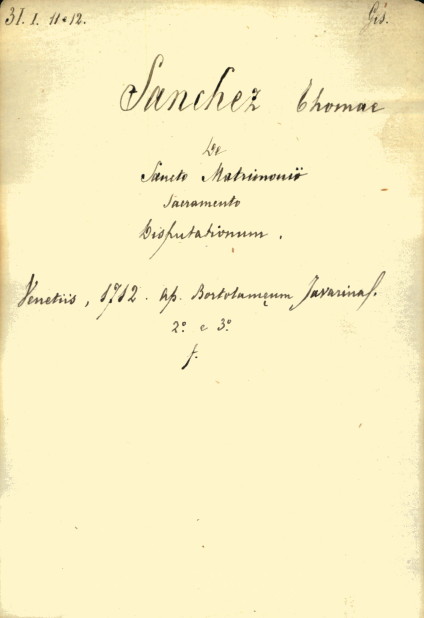 31. I. 11 e 12.
Gis.
Sanchez Thomae
De
Sancto Matrimonii
Sacramento
Disputationum.
Venetiis, 1712. ap. Bortolameum Javarina f.
2.º e 3.º
f.